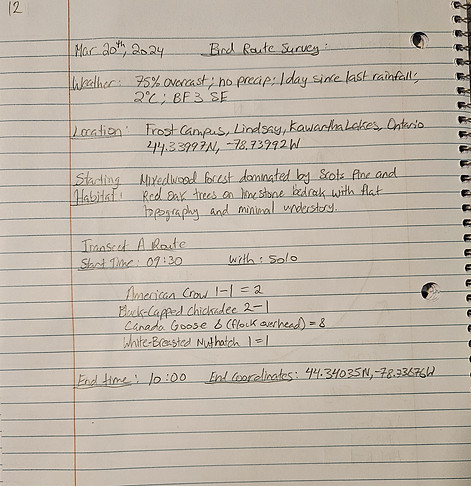 12
Mar 20th, 2024 Bird Route Survey:
Weather: 75% overcast; no precip; 1 day since last rainfall;
2°C; BF3 SE
Location: Frost Campus, Lindsay, Kawartha Lakes, Ontario
44.33997N, -78.73992W
Starting Mixedwood forest dominated by Scots Pine and
Habitat: Red Oak trees on limestone bedrock with flat
topography and minimal understory.
Transect A Route
Start Time: 09:30 With: Solo
American Crow 1-1 = 2
Black-Capped Chickadee 2-1
Canada Goose 8 (flock overhead) = 8
White-Breasted Nuthatch 1 = 1
End time: 10:00 End Coordinates: 44.34035N, -78.73676W